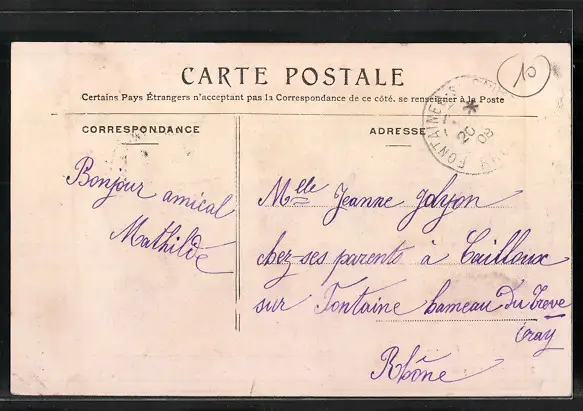 CARTE POSTALE
Certains Pays Étrangers n'acceptant pas la Correspondance de ce côté, se renseigner à la Poste
CORRESPONDANCE
ADRESSE
Bonjour amical
Mathilde
Mlle Jeanne
chez ses parents à Cailloux
sur Fontaine hameau Du Trève
Rhône
FONTAINES
20
08
10